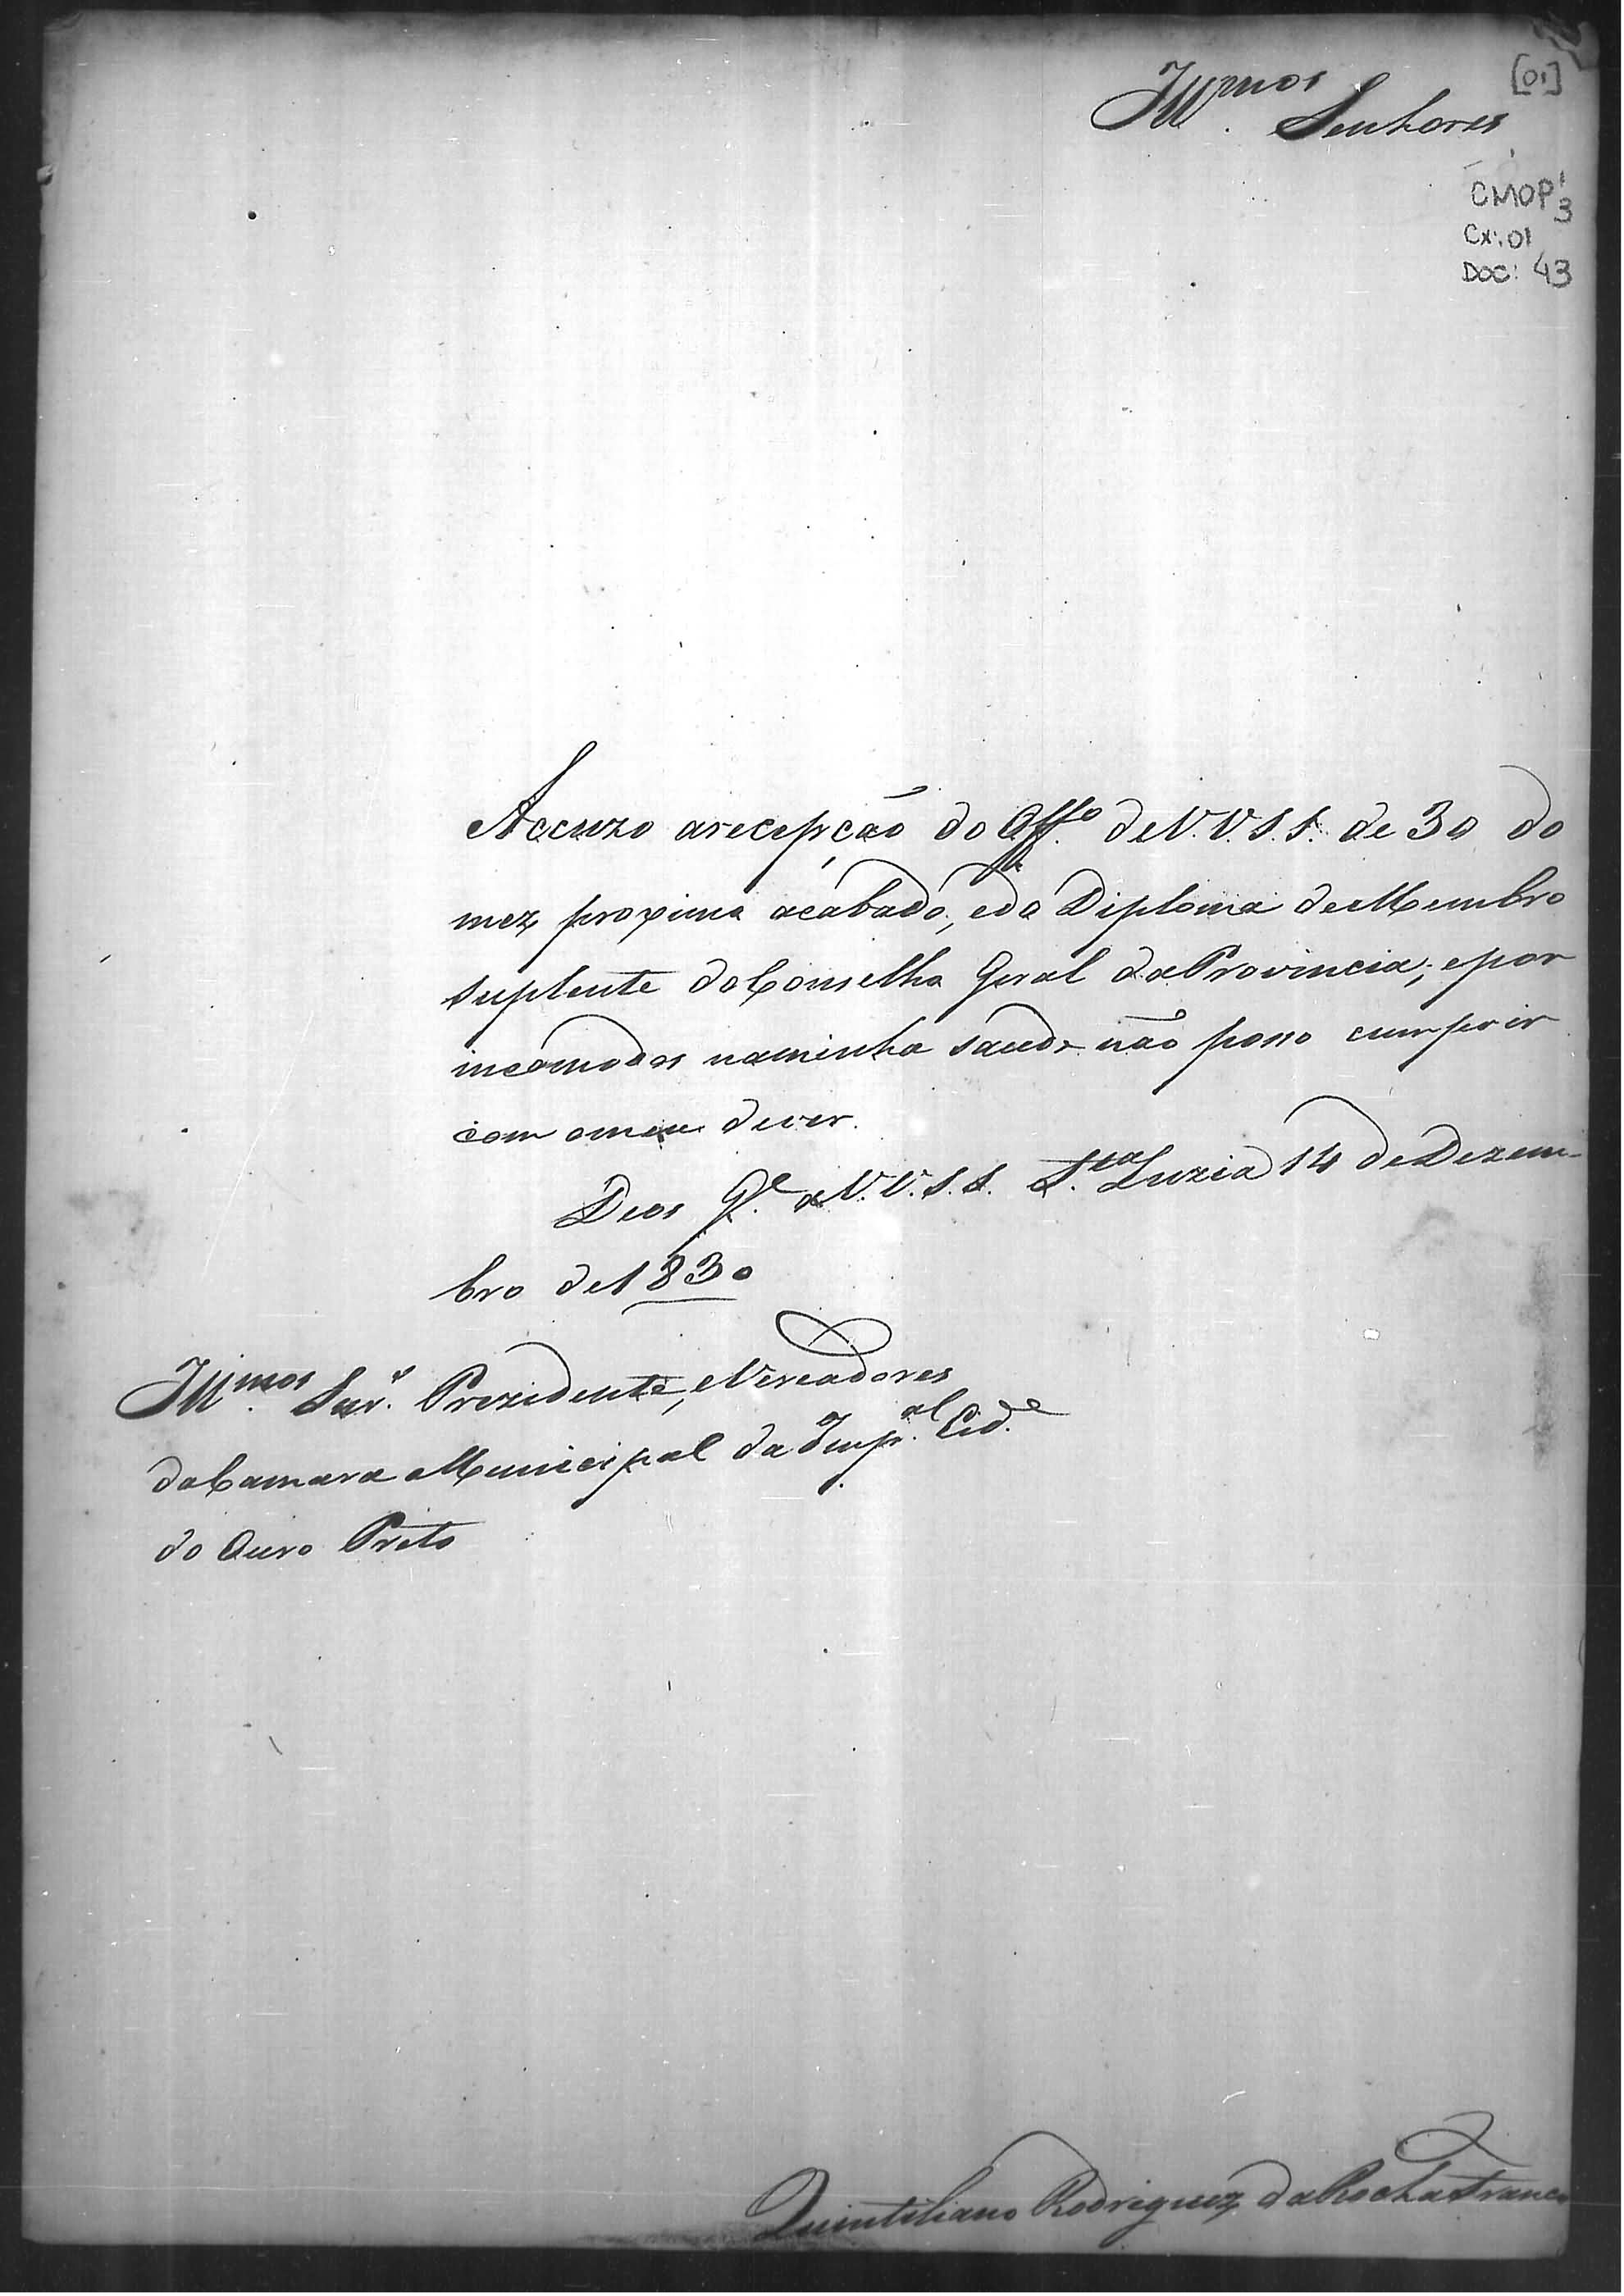 [01]
Illmos. Senhores
CMOP 1/3
Cx: 01
DOC: 43
Accuzo arecepção do Offo. de V.V.S.S. de 30 do
mez proximo acabado, edo Diploma de Membro
suplente do Conselho Geral da Provincia; epor
incomodos naminha saude não posso cumprir
com omeu dever.
Deos Ge. a V.V.S.S. Sta. Luzia 14 de Dezem-
bro de 1830
Illmos. Snrs. Prezidente, e Vereadores
da Camara Municipal da Impal. Cide.
do Ouro Preto
Quintiliano Rodriguez da Rocha Franco